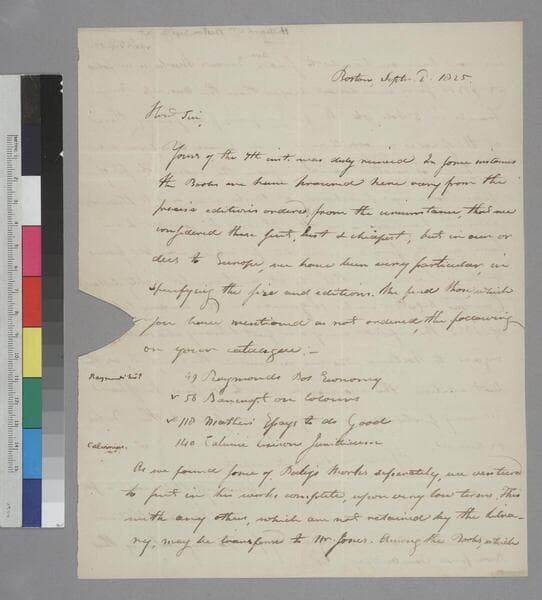 Boston, Sept. 1825
Hond Sir,
Yours of the 7th inst. was duly received. In some instances
the Books we have procured here vary from the
precise editions ordered, from the circumstance, that we
considered these first, best & cheapest, but in our or
ders to Europe, we have been very particular, in
specifying the size and editions. We find those, which
you have mentioned as not ordered, the following
on your catalogue:—
49 Raymonds Economy
✓ 56 Bancroft on Colours
✓ 118 Mathers Essays to do Good
140
As we found some of Works separately, we ventured
to put in his works complete, upon very low terms. This
with any other, which are not retained by the Libra-
ry, may be transferred to Mr. Jones. Among the Books, which